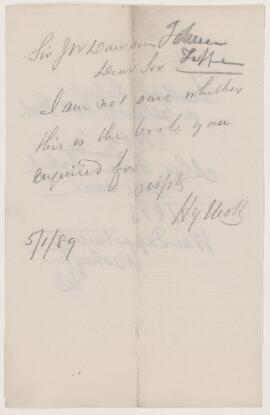 Sir J W Dawson
Dear Sir
I am not sure whether
this is the book you
enquired for
respfy
Hy Mott
5/1/89